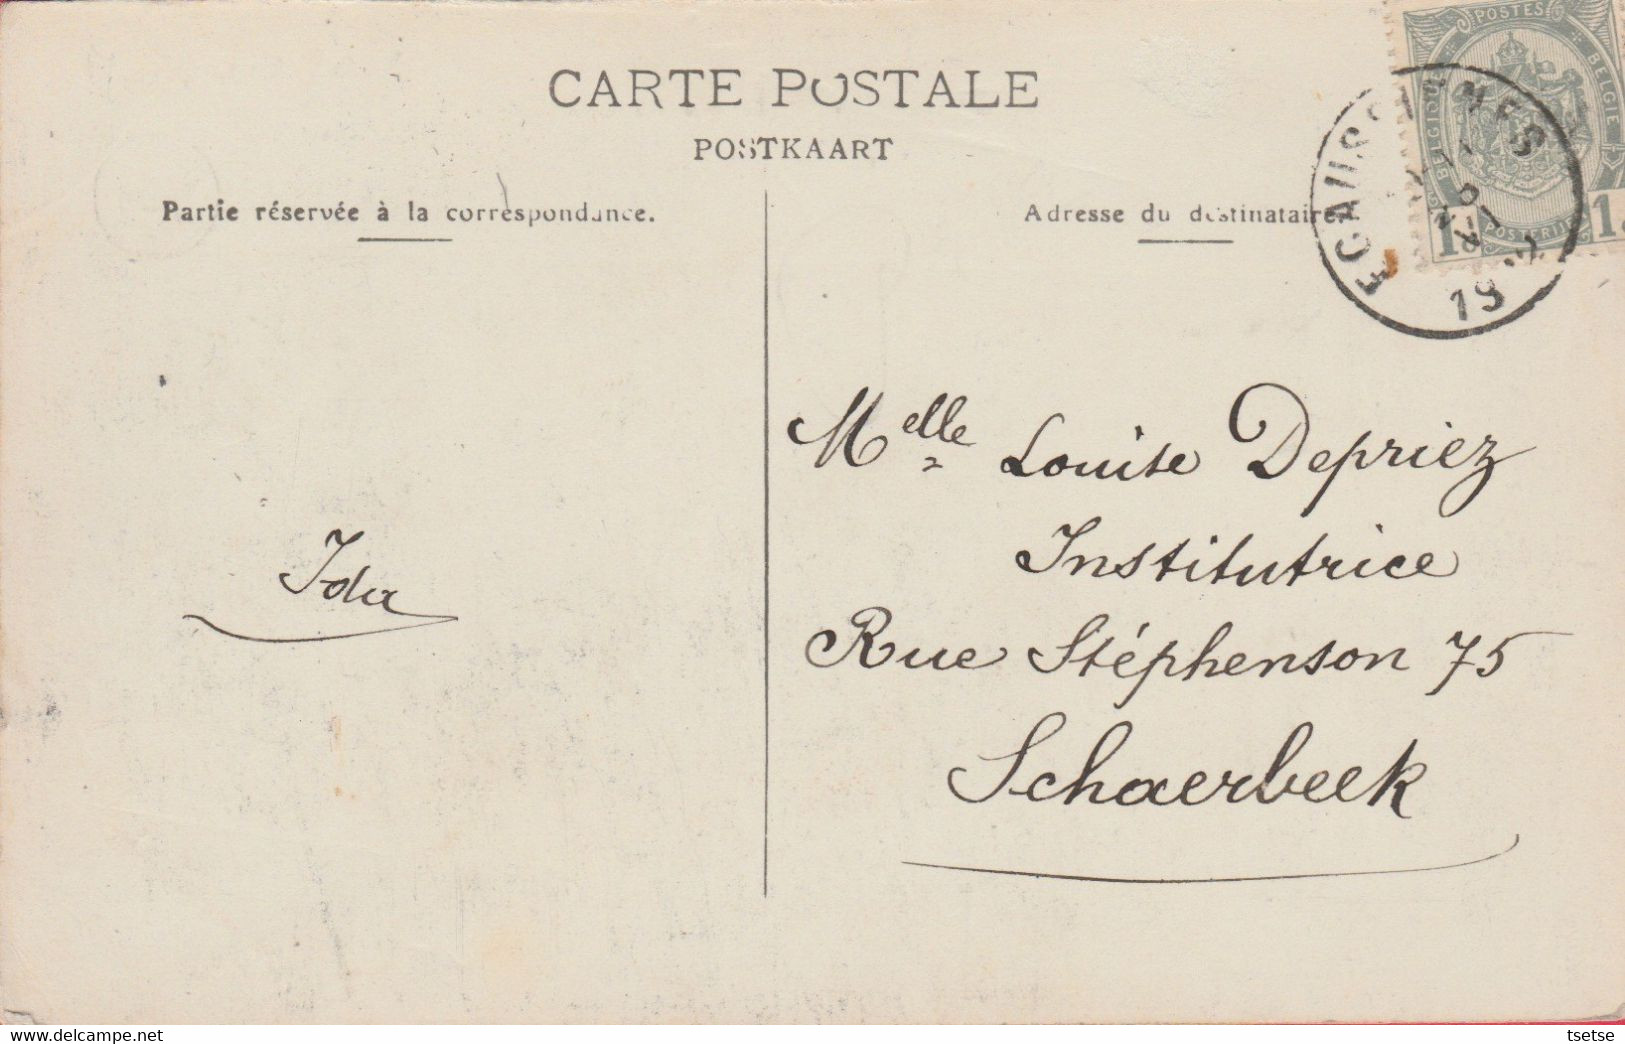 CARTE POSTALE
POSTKAART
Partie réservée à la correspondance.
Adresse du destinataire.
POSTES
BELGIQUE
BELGIE
POSTERIJEN
ECAUSSINNES
19
Ida
Melle Louise Depriez
Institutrice
Rue Stéphenson 75
Schaerbeek
www.delcampe.net
tsetse